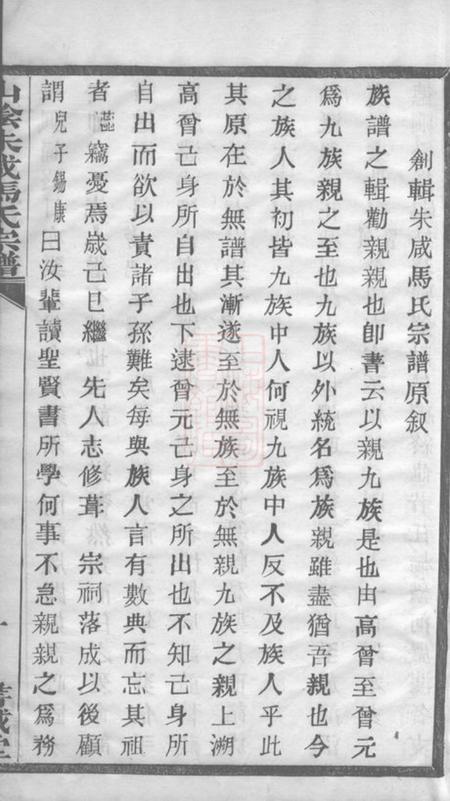 創輯朱咸馬氏宗譜原叙
族譜之輯勸親親也卽書云以親九族是也由高曾至曾元
爲九族親之至也九族以外統名爲族親雖盡猶吾親也今
之族人其初皆九族中人何視九族中人反不及族人乎此
其原在於無譜其漸遂至於無族至於無親九族之親上溯
高曾己身所自出也下逮曾元己身之所出也不知己身所
自出而欲以責諸子孫難矣每與族人言有數典而忘其祖
者蕊竊憂焉嵗己巳繼 先人志修葺 宗祠落成以後顧
謂兒子錫康曰汝輩讀聖賢書所學何事不急親親之爲務
山陰朱咸馬氏宗譜
一